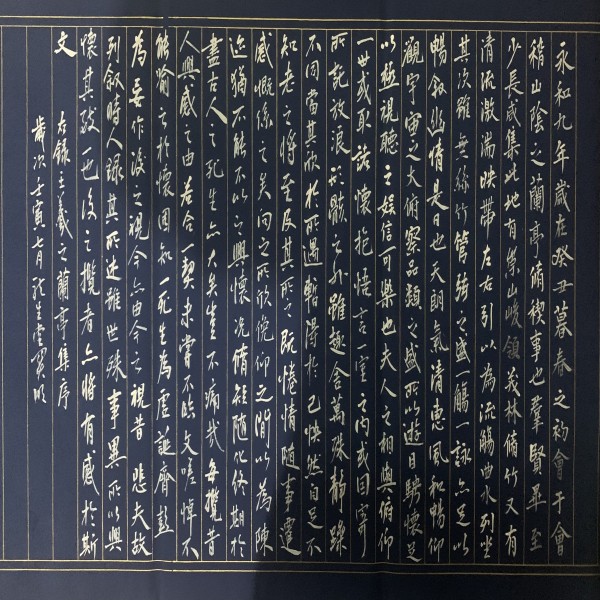 永和九年歲在癸丑暮春之初會于會
稽山陰之蘭亭脩稧事也羣賢畢至
少長咸集此地有崇山峻領茂林脩竹又有
清流激湍映帶左右引以為流觴曲水列坐
其次雖無絲竹管弦之盛一觴一詠亦足以
暢敘幽情是日也天朗氣清惠風和暢仰
觀宇宙之大俯察品類之盛所以遊目騁懷足
以極視聽之娛信可樂也夫人之相與俯仰
一世或取諸懷抱悟言一室之內或因寄
所託放浪形骸之外雖趣舍萬殊靜躁
不同當其欣於所遇暫得於己快然自足不
知老之將至及其所之既惓情隨事遷
感慨係之矣向之所欣俛仰之間以為陳
迹猶不能不以之興懷況脩短隨化終期於
盡古人云死生亦大矣豈不痛哉每攬昔
人興感之由若合一契未嘗不臨文嗟悼不
能喻之於懷固知一死生為虛誕齊彭
為妄作後之視今亦由今之視昔悲夫故
列敘時人錄其所述雖世殊事異所以興
懷其致一也後之攬者亦將有感於斯
文
右錄王羲之蘭亭集序
歲次壬寅七月